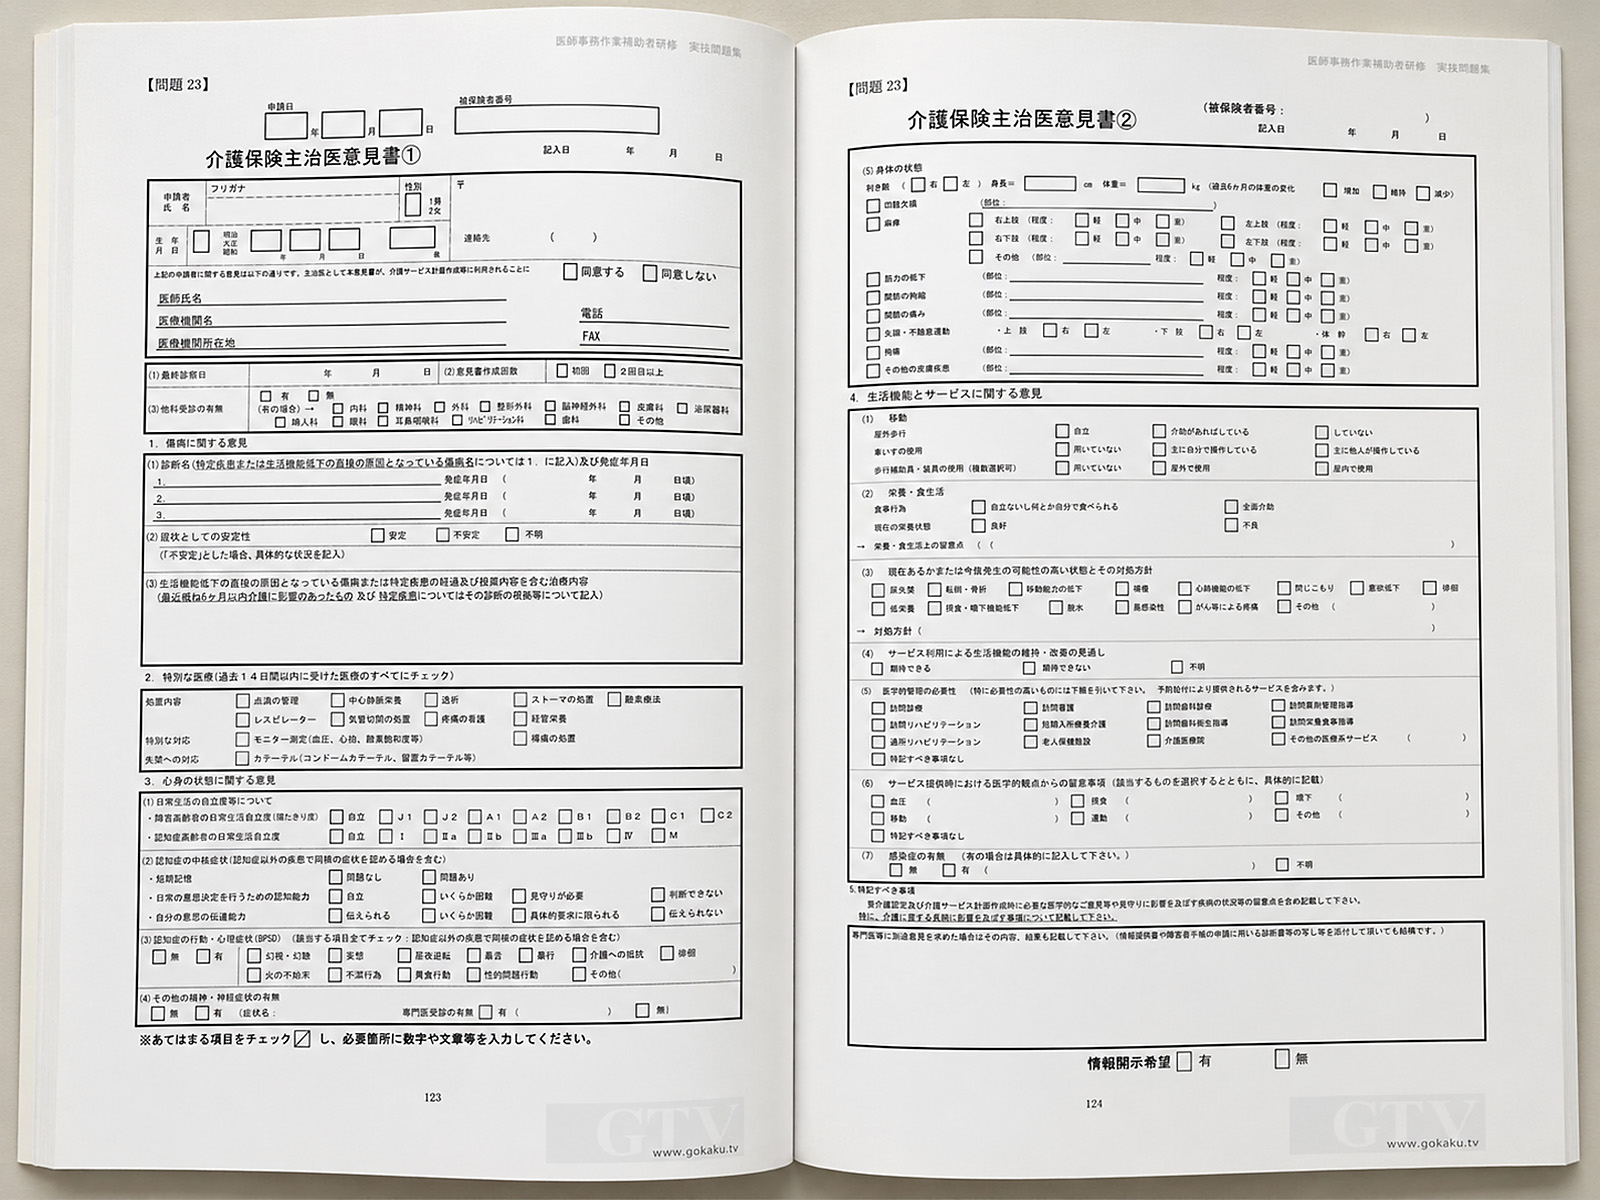 医師事務作業補助者研修 実技問題集
【問題 23】
申請日
年 月 日
被保険者番号
介護保険主治医意見書①
記入日 年 月 日
申請者
氏 名
フリガナ
性別
1男
2女
〒
生 年
月 日
明治
大正
昭和
年 月 日 歳
連絡先 ( )
上記の申請者に関する意見は以下の通りです。主治医として本意見書が、介護サービス計画作成等に利用されることに
□同意する □同意しない
医師氏名
医療機関名
電話
医療機関所在地
FAX
(1)最終診察日 年 月 日
(2)意見書作成回数 □初回 □2回目以上
(3)他科受診の有無
□有 □無
(有の場合)→ □内科 □精神科 □外科 □整形外科 □脳神経外科 □皮膚科 □泌尿器科
□婦人科 □眼科 □耳鼻咽喉科 □リハビリテーション科 □歯科 □その他
1. 傷病に関する意見
(1)診断名(特定疾患または生活機能低下の直接の原因となっている傷病名については1.に記入)及び発症年月日
1. 発症年月日 ( 年 月 日頃)
2. 発症年月日 ( 年 月 日頃)
3. 発症年月日 ( 年 月 日頃)
(2)症状としての安定性 □安定 □不安定 □不明
(「不安定」とした場合、具体的な状況を記入)
(3)生活機能低下の直接の原因となっている傷病または特定疾患の経過及び投薬内容を含む治療内容
(最近概ね6ヶ月以内介護に影響のあったもの 及び 特定疾患についてはその診断の根拠等について記入)
2. 特別な医療(過去14日間以内に受けた医療のすべてにチェック)
処置内容 □点滴の管理 □中心静脈栄養 □透析 □ストーマの処置 □酸素療法
□レスピレーター □気管切開の処置 □疼痛の看護 □経管栄養
特別な対応 □モニター測定(血圧、心拍、酸素飽和度等) □褥瘡の処置
失禁への対応 □カテーテル(コンドームカテーテル、留置カテーテル等)
3. 心身の状態に関する意見
(1)日常生活の自立度等について
・障害高齢者の日常生活自立度(寝たきり度) □自立 □J1 □J2 □A1 □A2 □B1 □B2 □C1 □C2
・認知症高齢者の日常生活自立度 □自立 □Ⅰ □Ⅱa □Ⅱb □Ⅲa □Ⅲb □Ⅳ □M
(2)認知症の中核症状(認知症以外の疾患で同様の症状を認める場合を含む)
・短期記憶 □問題なし □問題あり
・日常の意思決定を行うための認知能力 □自立 □いくらか困難 □見守りが必要 □判断できない
・自分の意思の伝達能力 □伝えられる □いくらか困難 □具体的要求に限られる □伝えられない
(3)認知症の行動・心理症状(BPSD) (該当する項目全てチェック:認知症以外の疾患で同様の症状を認める場合を含む)
□無 □有 □幻視・幻聴 □妄想 □昼夜逆転 □暴言 □暴行 □介護への抵抗 □徘徊
□火の不始末 □不潔行為 □異食行動 □性的問題行動 □その他( )
(4)その他の精神・神経症状の有無
□無 □有 (症状名: 専門医受診の有無 □有 ( ) □無)
※あてはまる項目をチェック☑し、必要箇所に数字や文章等を入力してください。
123
GTV
www.gokaku.tv
医師事務作業補助者研修 実技問題集
【問題 23】
介護保険主治医意見書②
(被保険者番号: )
記入日 年 月 日
(5)身体の状態
利き腕 ( □右 □左 ) 身長= cm 体重= kg (過去6か月の体重の変化 □増加 □維持 □減少)
□四肢欠損 (部位: )
□麻痺 □右上肢 (程度: □軽 □中 □重) □左上肢 (程度: □軽 □中 □重)
□右下肢 (程度: □軽 □中 □重) □左下肢 (程度: □軽 □中 □重)
□その他 (部位: 程度: □軽 □中 □重)
□筋力の低下 (部位: 程度: □軽 □中 □重)
□関節の拘縮 (部位: 程度: □軽 □中 □重)
□関節の痛み (部位: 程度: □軽 □中 □重)
□失調・不随意運動 ・上 肢 □右 □左 ・下 肢 □右 □左 ・体 幹 □右 □左
□褥瘡 (部位: 程度: □軽 □中 □重)
□その他の皮膚疾患 (部位: 程度: □軽 □中 □重)
4. 生活機能とサービスに関する意見
(1) 移動
屋外歩行 □自立 □介助があればしている □していない
車いすの使用 □用いていない □主に自分で操作している □主に他人が操作している
歩行補助具・装具の使用(複数選択可) □用いていない □屋外で使用 □屋内で使用
(2) 栄養・食生活
食事行為 □自立ないし何とか自分で食べられる □全面介助
現在の栄養状態 □良好 □不良
→ 栄養・食生活上の留意点 ( ( )
(3) 現在あるかまたは今後発生の可能性の高い状態とその対処方針
□尿失禁 □転倒・骨折 □移動能力の低下 □褥瘡 □心肺機能の低下 □閉じこもり □意欲低下 □徘徊
□低栄養 □摂食・嚥下機能低下 □脱水 □易感染性 □がん等による疼痛 □その他 ( )
→ 対処方針 ( )
(4) サービス利用による生活機能の維持・改善の見通し
□期待できる □期待できない □不明
(5) 医学的管理の必要性 (特に必要性の高いものには下線を引いて下さい。 予防給付により提供されるサービスを含みます。)
□訪問診療 □訪問看護 □訪問歯科診療 □訪問薬剤管理指導
□訪問リハビリテーション □短期入所療養介護 □訪問歯科衛生指導 □訪問栄養食事指導
□通所リハビリテーション □老人保健施設 □介護医療院 □その他の医療系サービス ( )
□特記すべき事項なし
(6) サービス提供時における医学的観点からの留意事項 (該当するものを選択するとともに、具体的に記載)
□血圧 ( ) □摂食 ( ) □嚥下 ( )
□移動 ( ) □運動 ( ) □その他 ( )
□特記すべき事項なし
(7) 感染症の有無 (有の場合は具体的に記入して下さい。)
□無 □有 ( ) □不明
5.特記すべき事項
要介護認定及び介護サービス計画作成時に必要な医学的なご意見等や見守りに影響を及ぼす疾病の状況等の留意点を含め記載して下さい。
特に、介護に要する長時に影響を及ぼす事項について記載して下さい。
専門医等に別途意見を求めた場合はその内容、結果も記載して下さい。(情報提供書や障害者手帳の申請に用いる診断書等の写し等を添付して頂いても結構です。)
情報開示希望 □有 □無
124
GTV
www.gokaku.tv